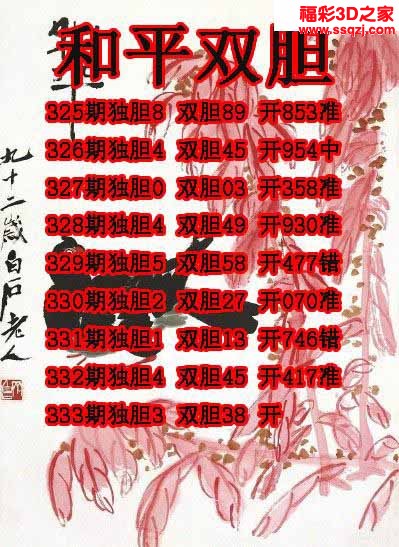 福彩3D之家
www.ssqzj.com
和平双胆
325期独胆8 双胆89 开853准
326期独胆4 双胆45 开954中
327期独胆0 双胆03 开358准
328期独胆4 双胆49 开930准
329期独胆5 双胆58 开477错
330期独胆2 双胆27 开070准
331期独胆1 双胆13 开746错
332期独胆4 双胆45 开417准
333期独胆3 双胆38 开
九十二岁白石老人